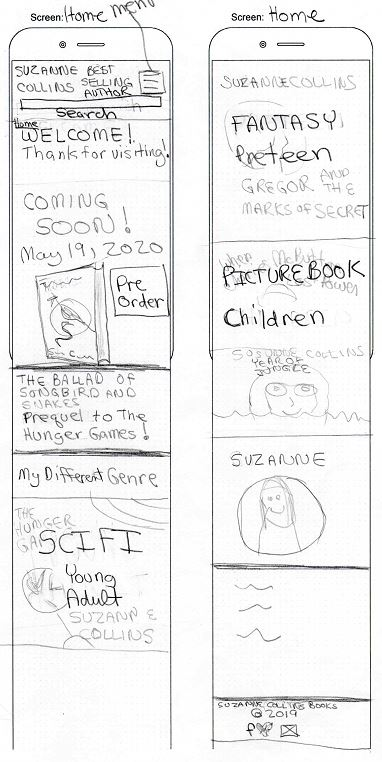 Screen: Home menu
SUZANNE BEST
COLLINS SELLING
AUTHOR
Search
Home
WELCOME!
Thanks for visiting!
COMING
SOON!
May 19, 2020
Pre
Order
THE BALLAD OF
SONGBIRD AND
SNAKES
Prequel to The
Hunger Games!
My Different Genre
THE
HUNGER
GA
SCIFI
Young
Adult
SUZANNE
COLLINS
Screen: Home
SUZANNE COLLINS
FANTASY
Preteen
GREGOR AND
THE
MARKS OF SECRET
When
PICTURE BOOK
Children
SUSUNNE COLLINS
YEAR OF
JUNGLE
SUZANNE
SUZANNE COLLINS BOOKS
© 2019